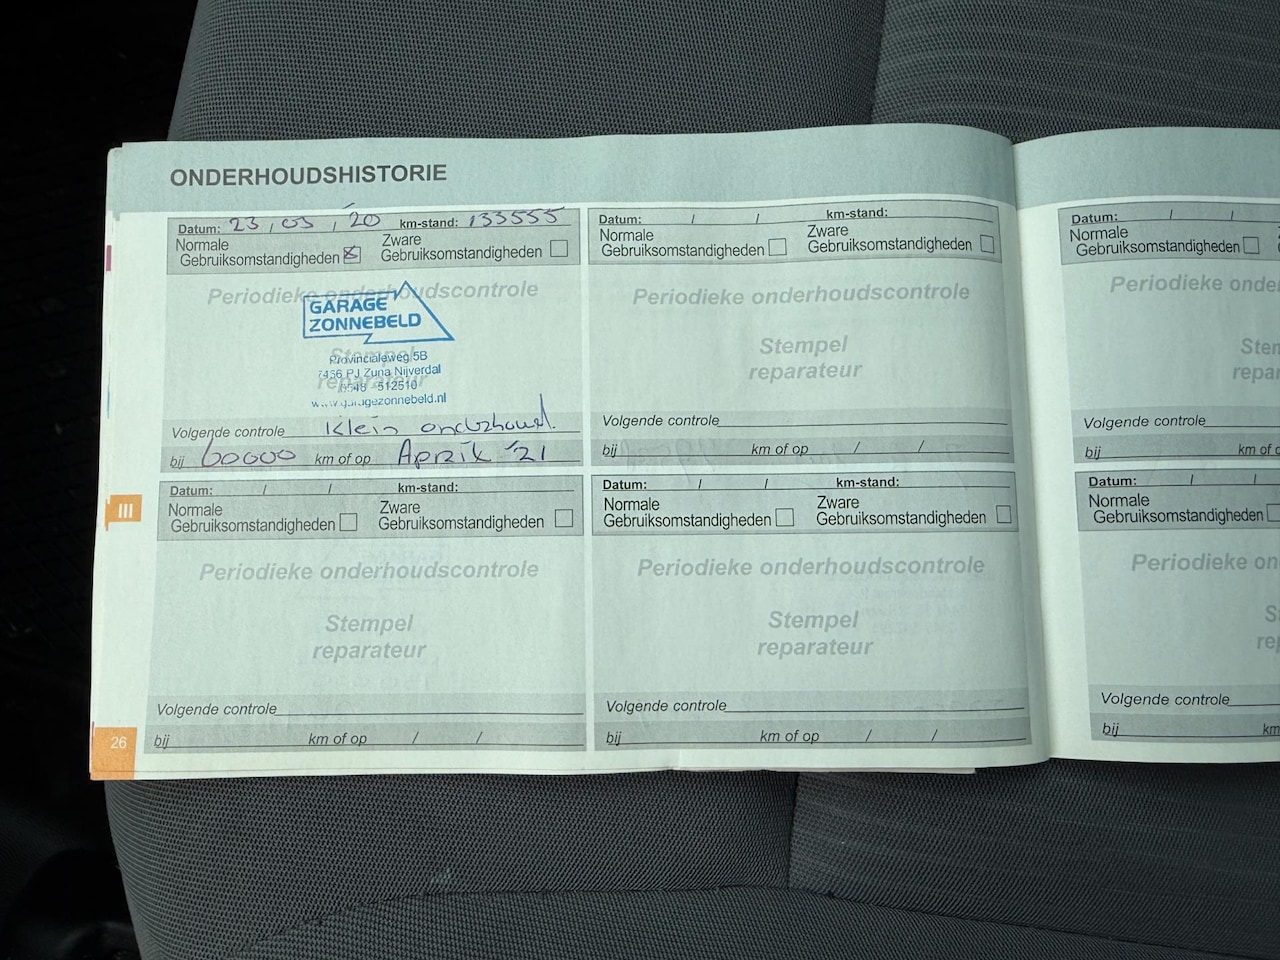 ONDERHOUDSHISTORIE
Datum: 23 / 03 / '20 km-stand: 133555
Normale Gebruiksomstandigheden ☒ Zware Gebruiksomstandigheden ☐
Periodieke onderhoudscontrole
GARAGE
ZONNEBELD
Stempel
reparateur
Provincialeweg 5B
7466 PJ Zuna Nijverdal
0548 - 512510
www.garagezonnebeld.nl
Volgende controle Klein onderhoud.
bij 60000 km of op April '21
Datum: / / km-stand:
Normale Gebruiksomstandigheden ☐ Zware Gebruiksomstandigheden ☐
Periodieke onderhoudscontrole
Stempel
reparateur
Volgende controle
bij km of op / /
III
Datum: / / km-stand:
Normale Gebruiksomstandigheden ☐ Zware Gebruiksomstandigheden ☐
Periodieke onderhoudscontrole
Stempel
reparateur
Volgende controle
bij km of op / /
Datum: / / km-stand:
Normale Gebruiksomstandigheden ☐ Zware Gebruiksomstandigheden ☐
Periodieke onderhoudscontrole
Stempel
reparateur
Volgende controle
bij km of op / /
26
Datum: / /
Normale
Gebruiksomstandigheden ☐
Periodieke onde
Sten
repa
Volgende controle
bij km of o
Datum: / /
Normale
Gebruiksomstandigheden
Periodieke on
S
re
Volgende controle
bij km